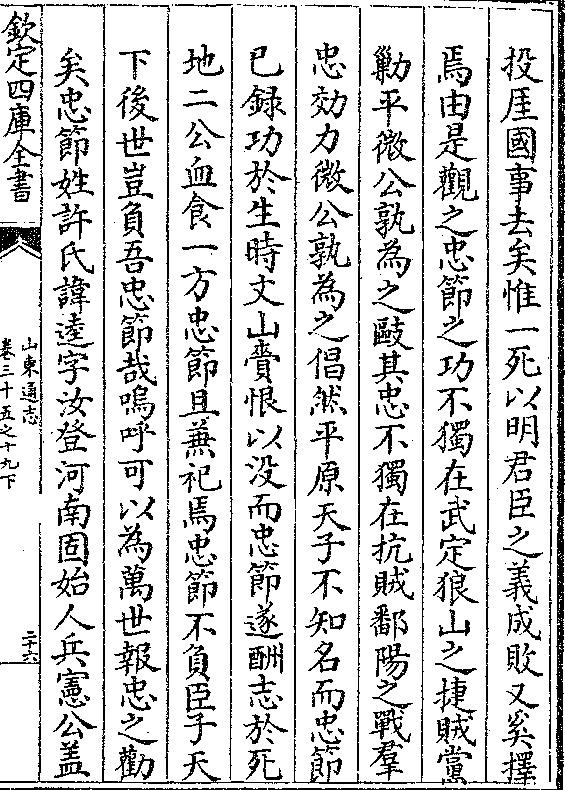 投厓國事去矣惟一死以明君臣之義成敗又奚擇
焉由是觀之忠節之功不獨在武定狼山之捷賊黨
勦平微公孰為之敺其忠不獨在抗賊鄱陽之戰羣
忠効力微公孰為之倡然平原天子不知名而忠節
已録功於生時文山賫恨以没而忠節遂酬志於死
地二公血食一方忠節且兼祀焉忠節不負臣子天
下後世豈負吾忠節哉嗚呼可以為萬世報忠之勸
矣忠節姓許氏諱逵字汝登河南固始人兵憲公盖
欽定四庫全書
山東通志
卷三十五之十九下
二十六